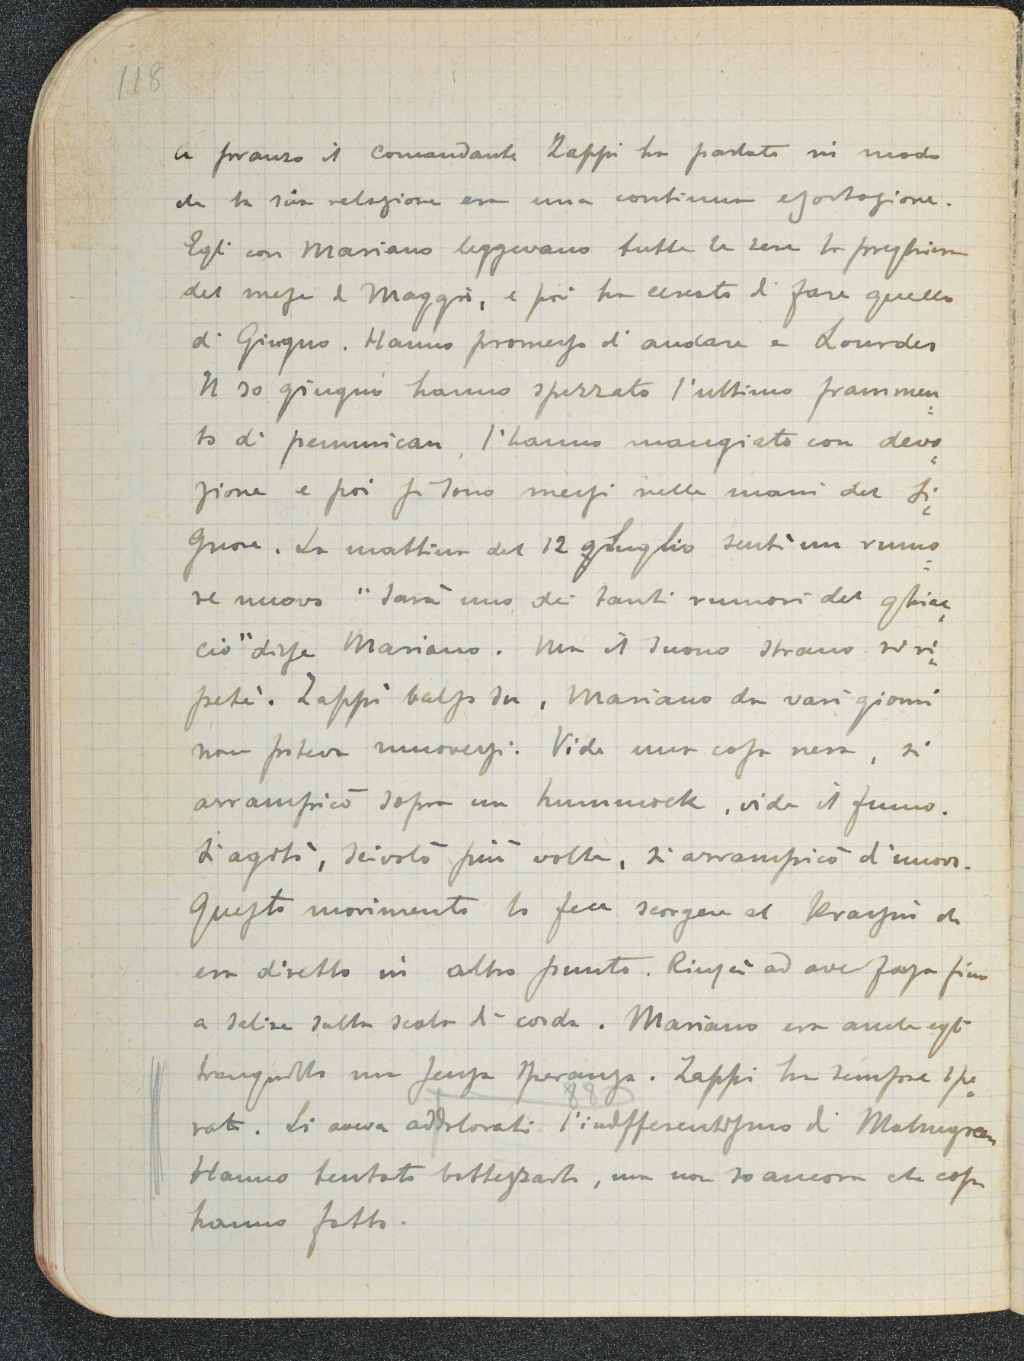 118
a pranzo il comandante Zappi ha parlato in modo
che la sua relazione era una continua esortazione.
Egli con Mariano leggevano tutte le sere la preghiera
del mese di Maggio, e poi ha cercato di fare quello
di Giugno. Hanno promesso di andare a Lourdes
Il 30 giugno hanno spezzato l'ultimo frammen=
to di pemmican, l'hanno mangiato con devo=
zione e poi si sono messi nelle mani del Si=
gnore. La mattina del 12 gluglio sentì un rumo=
re nuovo "Sarà uno dei tanti rumori del ghiac=
cio" disse Mariano. Ma il suono strano si ri=
peté. Zappi balzò su, Mariano da vari giorni
non poteva muoversi. Vide una cosa nera, si
arrampicò sopra un hummock, vide il fumo.
Si agitò, scivolò più volte, si arrampicò di nuovo.
Questo movimento lo fece scorgere al Krassin che
era diretto in altro punto. Riuscì ad aver forza fino
a salire sulla scala di corda. Mariano era anche egli
tranquillo ma senza speranza. Zappi ha sempre spe=
rato. Li aveva addolorati l'indifferentismo di Malmgren
Hanno tentato battezzarlo, ma non so ancora che cosa
hanno fatto.